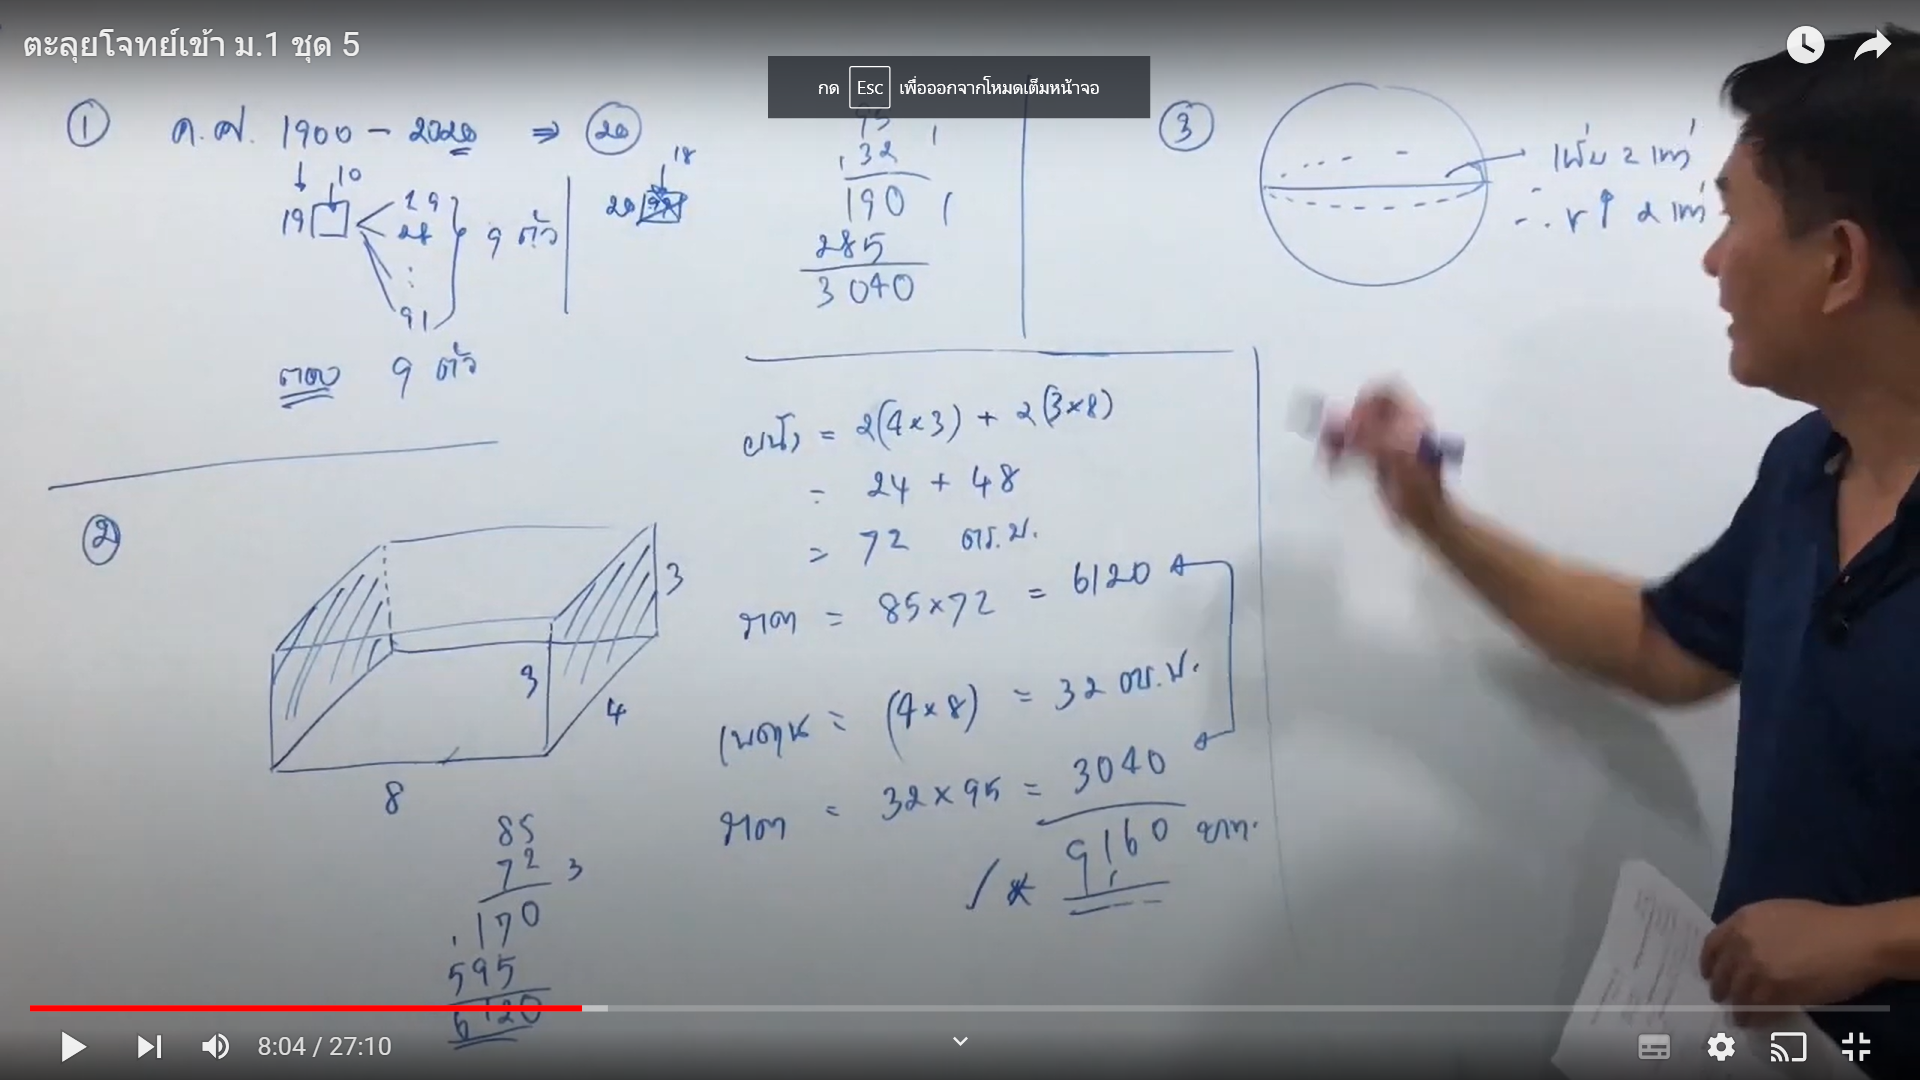 ตะลุยโจทย์เข้า ม.1 ชุด 5
กด Esc เพื่อออกจากโหมดเต็มหน้าจอ
① ค.ศ. 1900 - 2020 ⇒ 20
10
19
99
98
⋮
91
9 ตัว
18
20
ตอบ 9 ตัว
95
32
190
285
3040
③
เพิ่ม 2 เท่า
∴ r ↑ 2 เท่า
②
3
3
4
8
85
72 3
170
595
6120
ผนัง = 2(4×3) + 2(3×8)
= 24 + 48
= 72 ตร.ม.
ราคา = 85×72 = 6120
เพดาน = (4×8) = 32 ตร.ม.
ราคา = 32×95 = 3040
9,160 บาท.
8:04 / 27:10